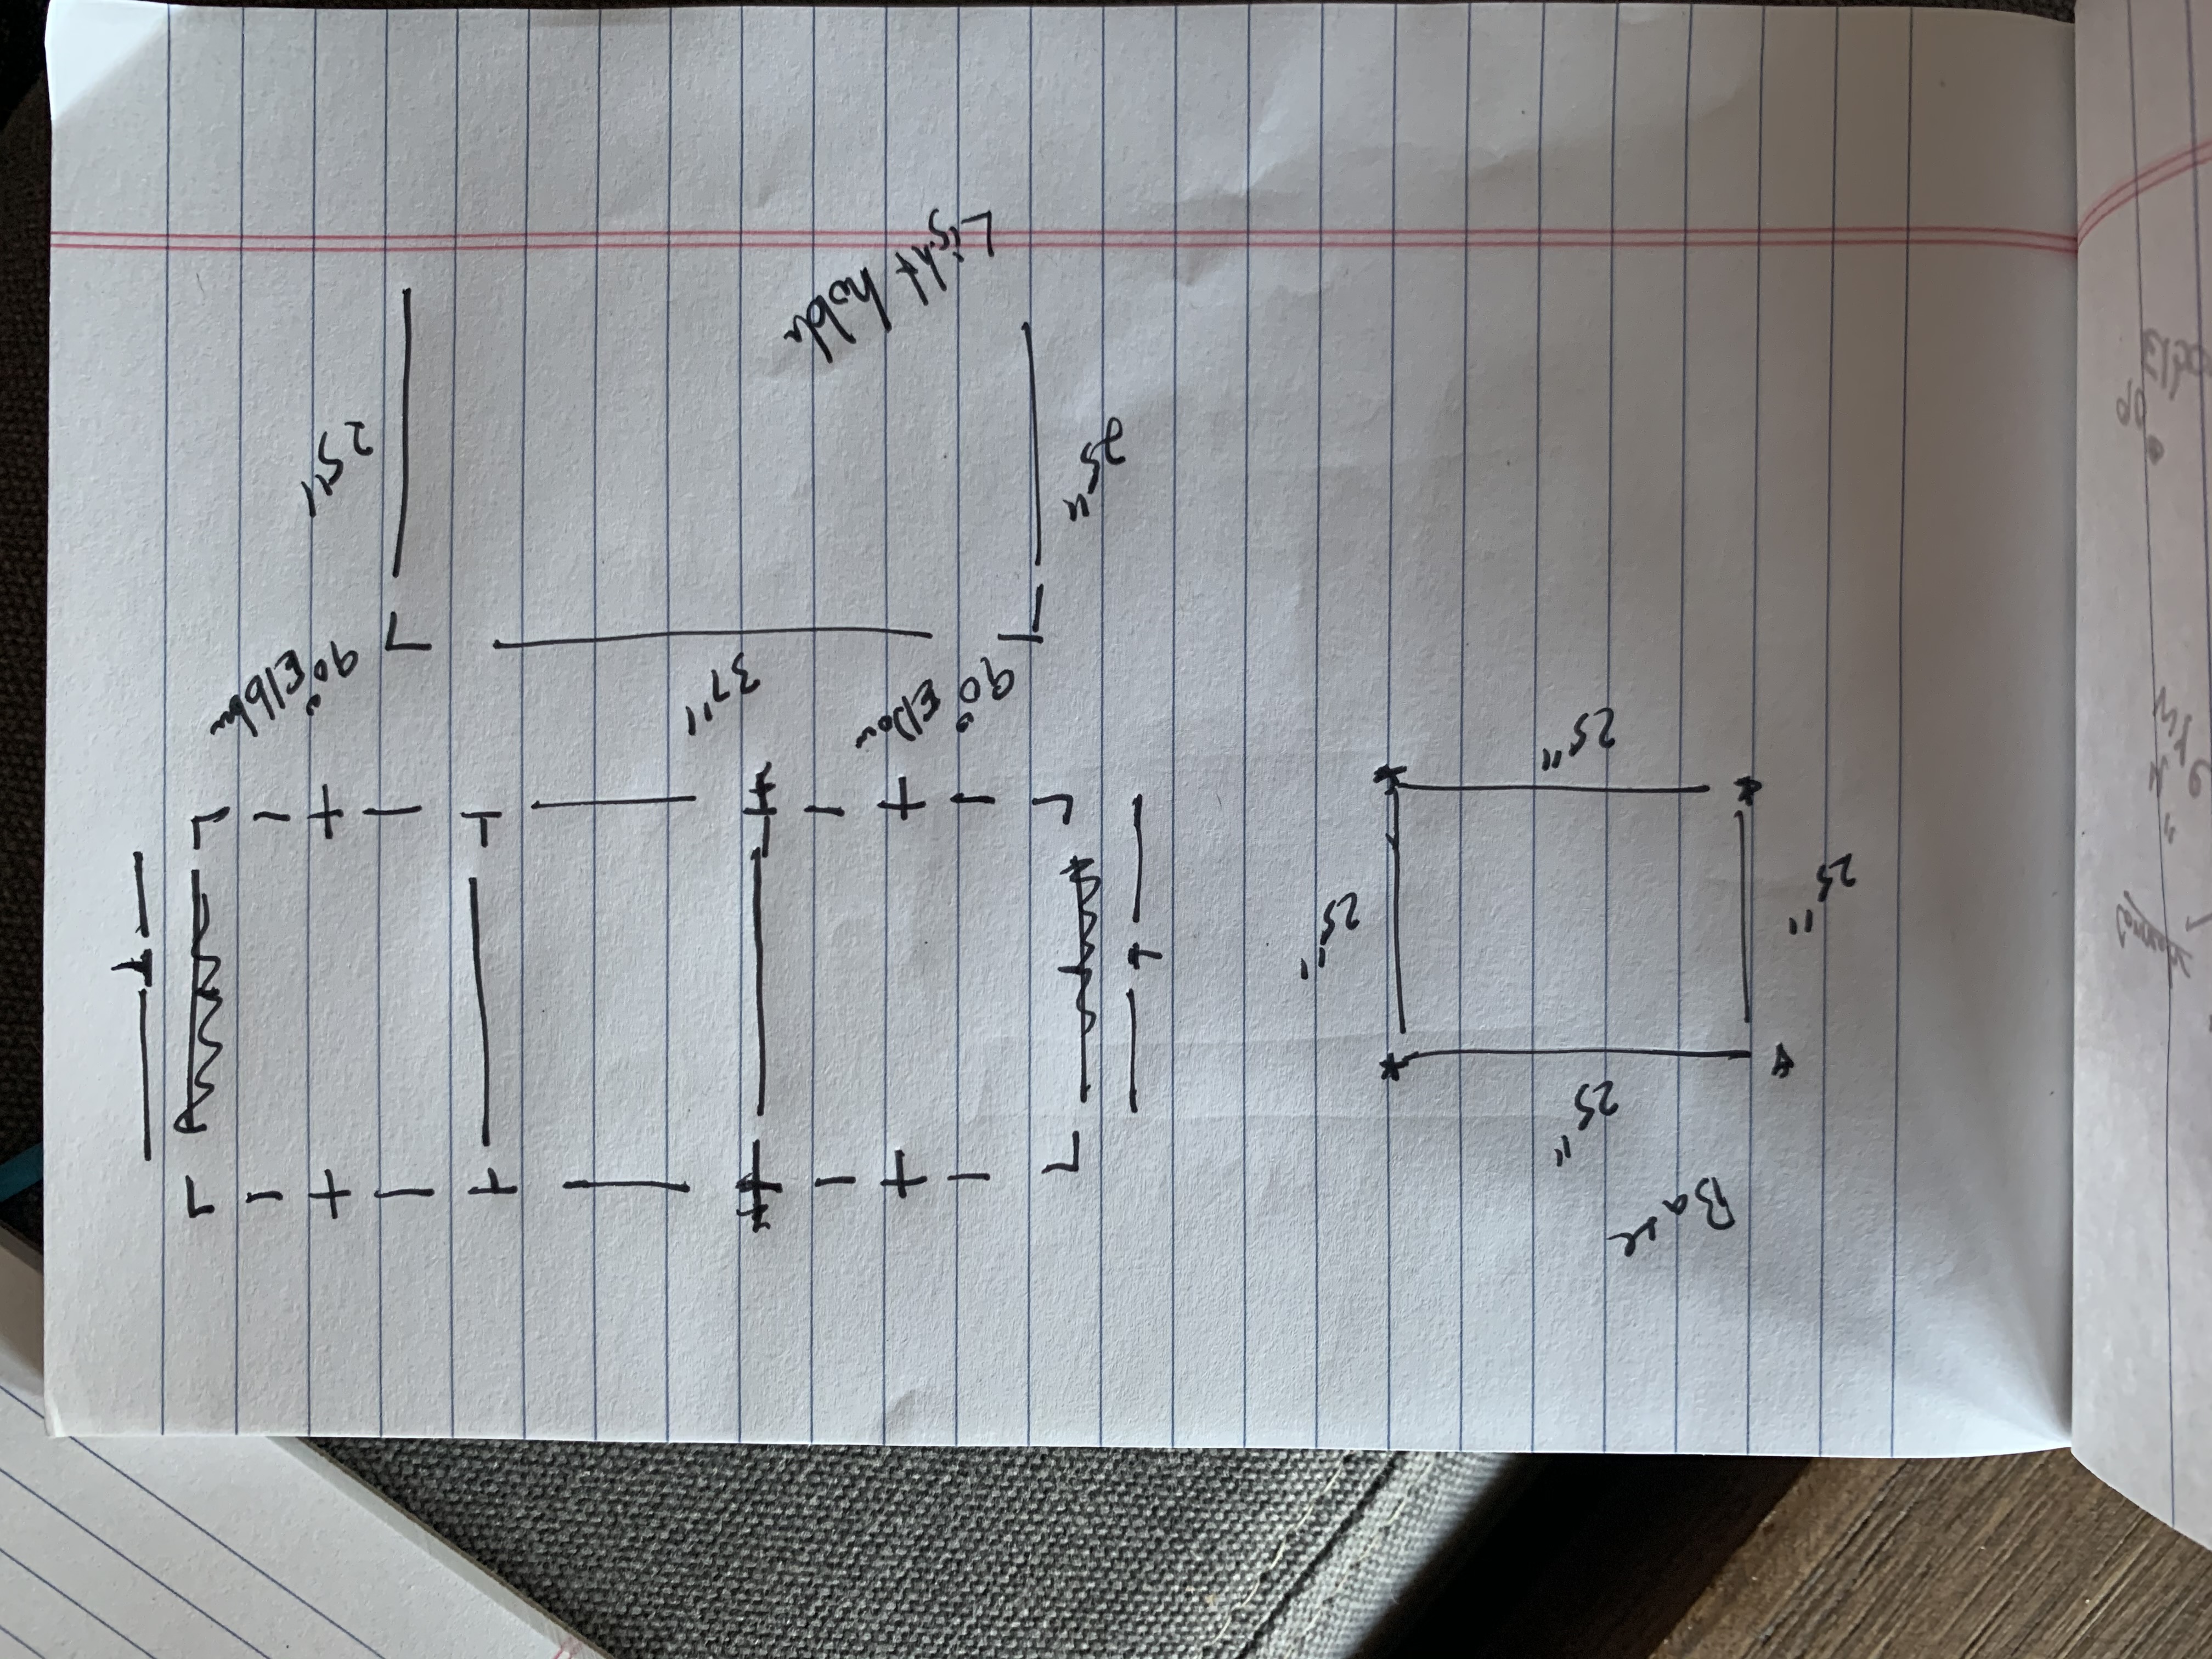 Base
25"
25"
25"
25"
90° Elbow
37"
90° Elbow
25"
25"
Light holder
90°
Elbow